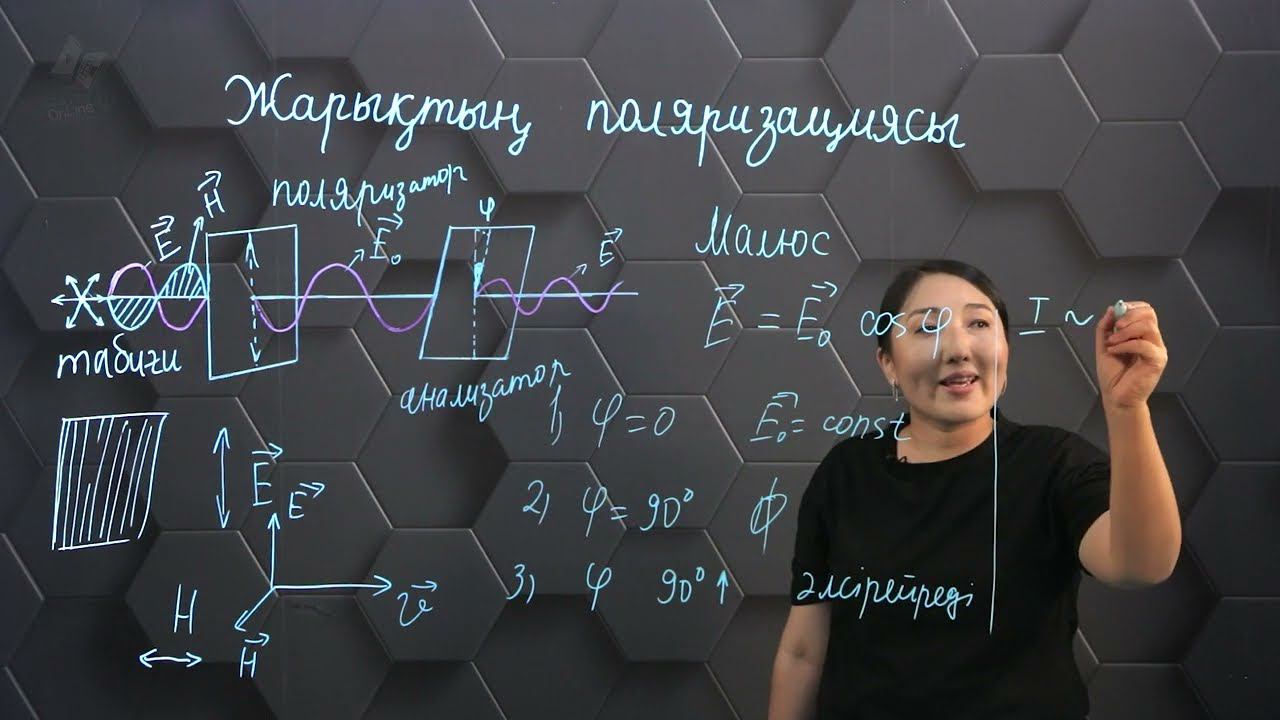 Online
Жарықтың поляризациясы
H
E
поляризатор
E₀
φ
E
табиғи
анализатор
Малюс
E = E₀ cos φ
I ~
1) φ = 0 E₀ = const
2) φ = 90° ϕ
3) φ 90° ↑ әлсірейреді
E
E
υ
H
H